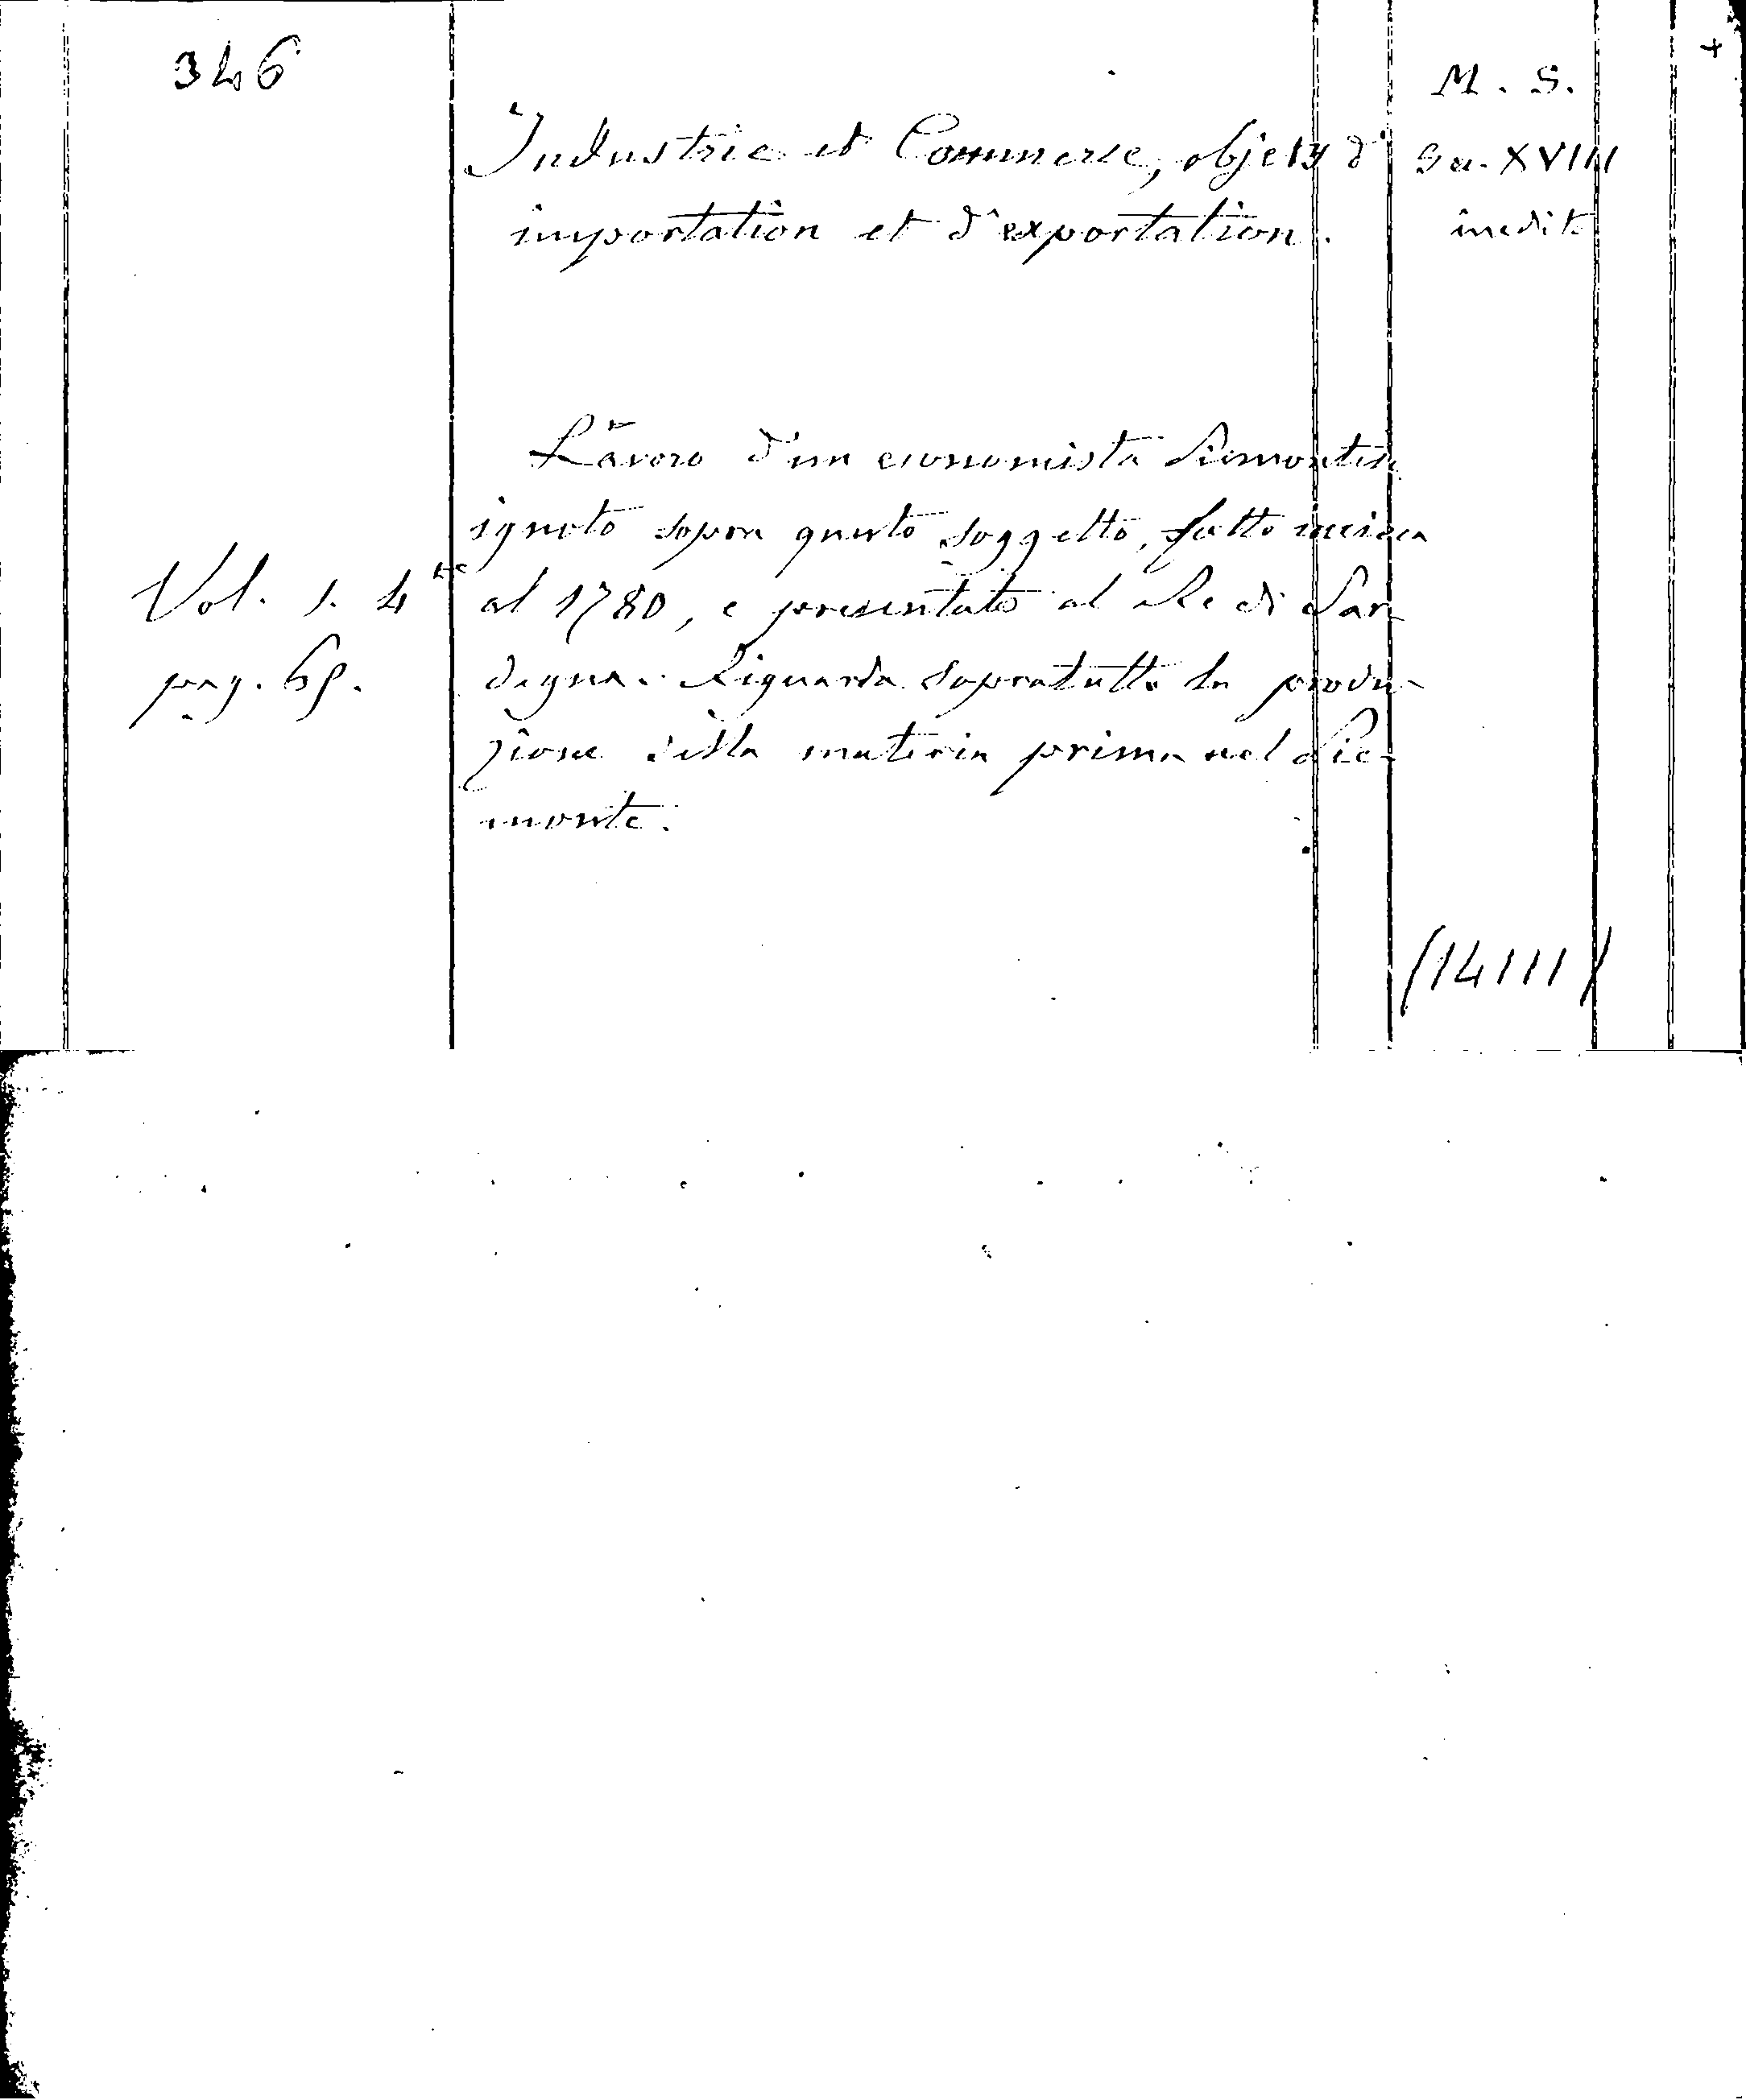 346
M. S.
Industrie et Commerce, objets d'
Sec. XVIII
importation et d'exportation.
inedito
Lavoro d'un economista Piemontese
ignoto sopra questo soggetto, fatto incirca
Vol. 1. 4to
al 1780, e presentato al Re di Sar-
pag.
degna. Riguarda sopratutto la produ-
zione della materia prima nel Pie-
monte.
(14111)